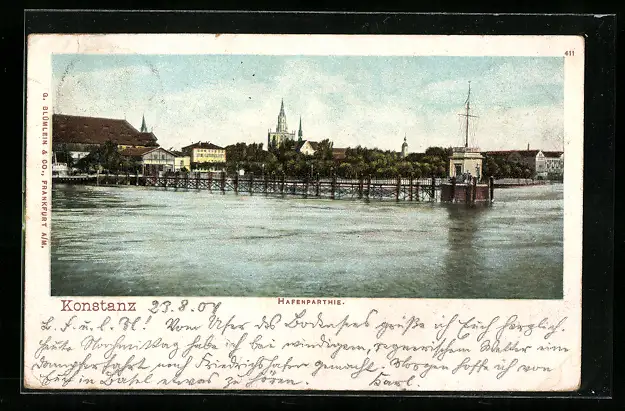 411
G. BLÜMLEIN & CO., FRANKFURT A/M.
HAFENPARTHIE.
Konstanz 23.8.04
L. F. u. l. M! Vom Ufer des Bodensees grüße ich Euch herzlich.
Heute Nachmittag habe ich bei windigem, regnerischem Wetter eine
Dampferfahrt nach Friedrichshafen gemacht. Morgen hoffe ich von
Euch in Basel etwas zu hören. Karl.